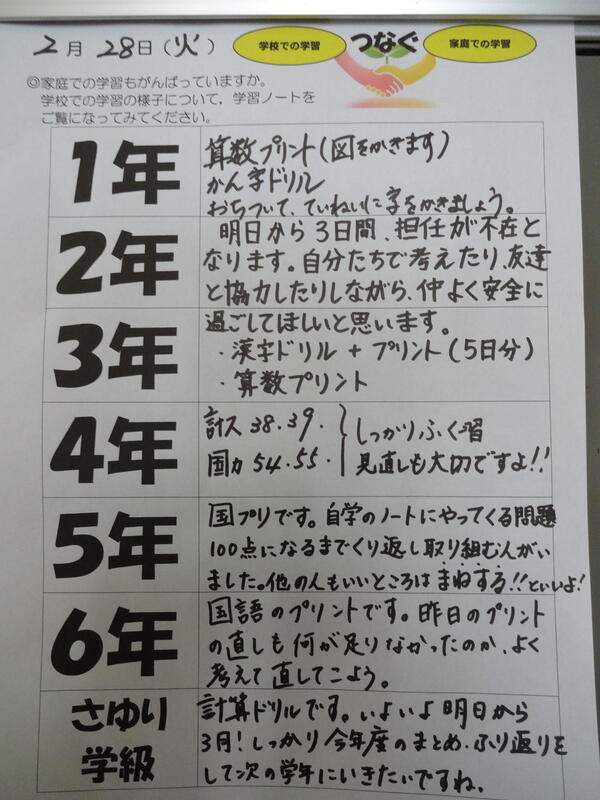 2月 28日（火）
学校での学習
つなぐ
家庭での学習
◎家庭での学習もがんばっていますか。
学校での学習の様子について，学習ノートを
ご覧になってみてください。
1年
算数プリント（図をかきます）
かん字ドリル
おちついて、ていねいに字をかきましょう。
2年
明日から3日間、担任が不在と
なります。自分たちで考えたり、友達
と協力したりしながら、仲よく安全に
過ごしてほしいと思います。
3年
・漢字ドリル＋プリント（5日分）
・算数プリント
4年
計ス 38.39.
国カ 54.55.
しっかりふく習
見直しも大切ですよ!!
5年
国プリです。自学のノートにやってくる問題
100点になるまでくり返し取り組む人がい
ました。他の人もいいところはまねする!!といいよ!
6年
国語のプリントです。昨日のプリント
の直しも何が足りなかったのか、よく
考えて直してこよう。
さゆり
学級
計算ドリルです。いよいよ明日から
3月！しっかり今年度のまとめ、ふり返りを
して次の学年にいきたいですね。